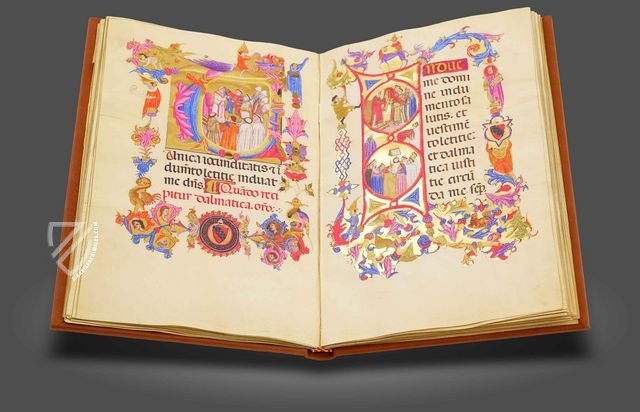 Unica iocunditatis ⁊ i
dumēto letitie induat
me dn̄s. Quando reci
pitur dalmatica. oro:
Indue
me domi
ne indu
mento sa
lutis. et
uestimē
to letitie
et dalma
tica iusti
tie circū
da me sēp.
FACSIMILEFINDER.COM